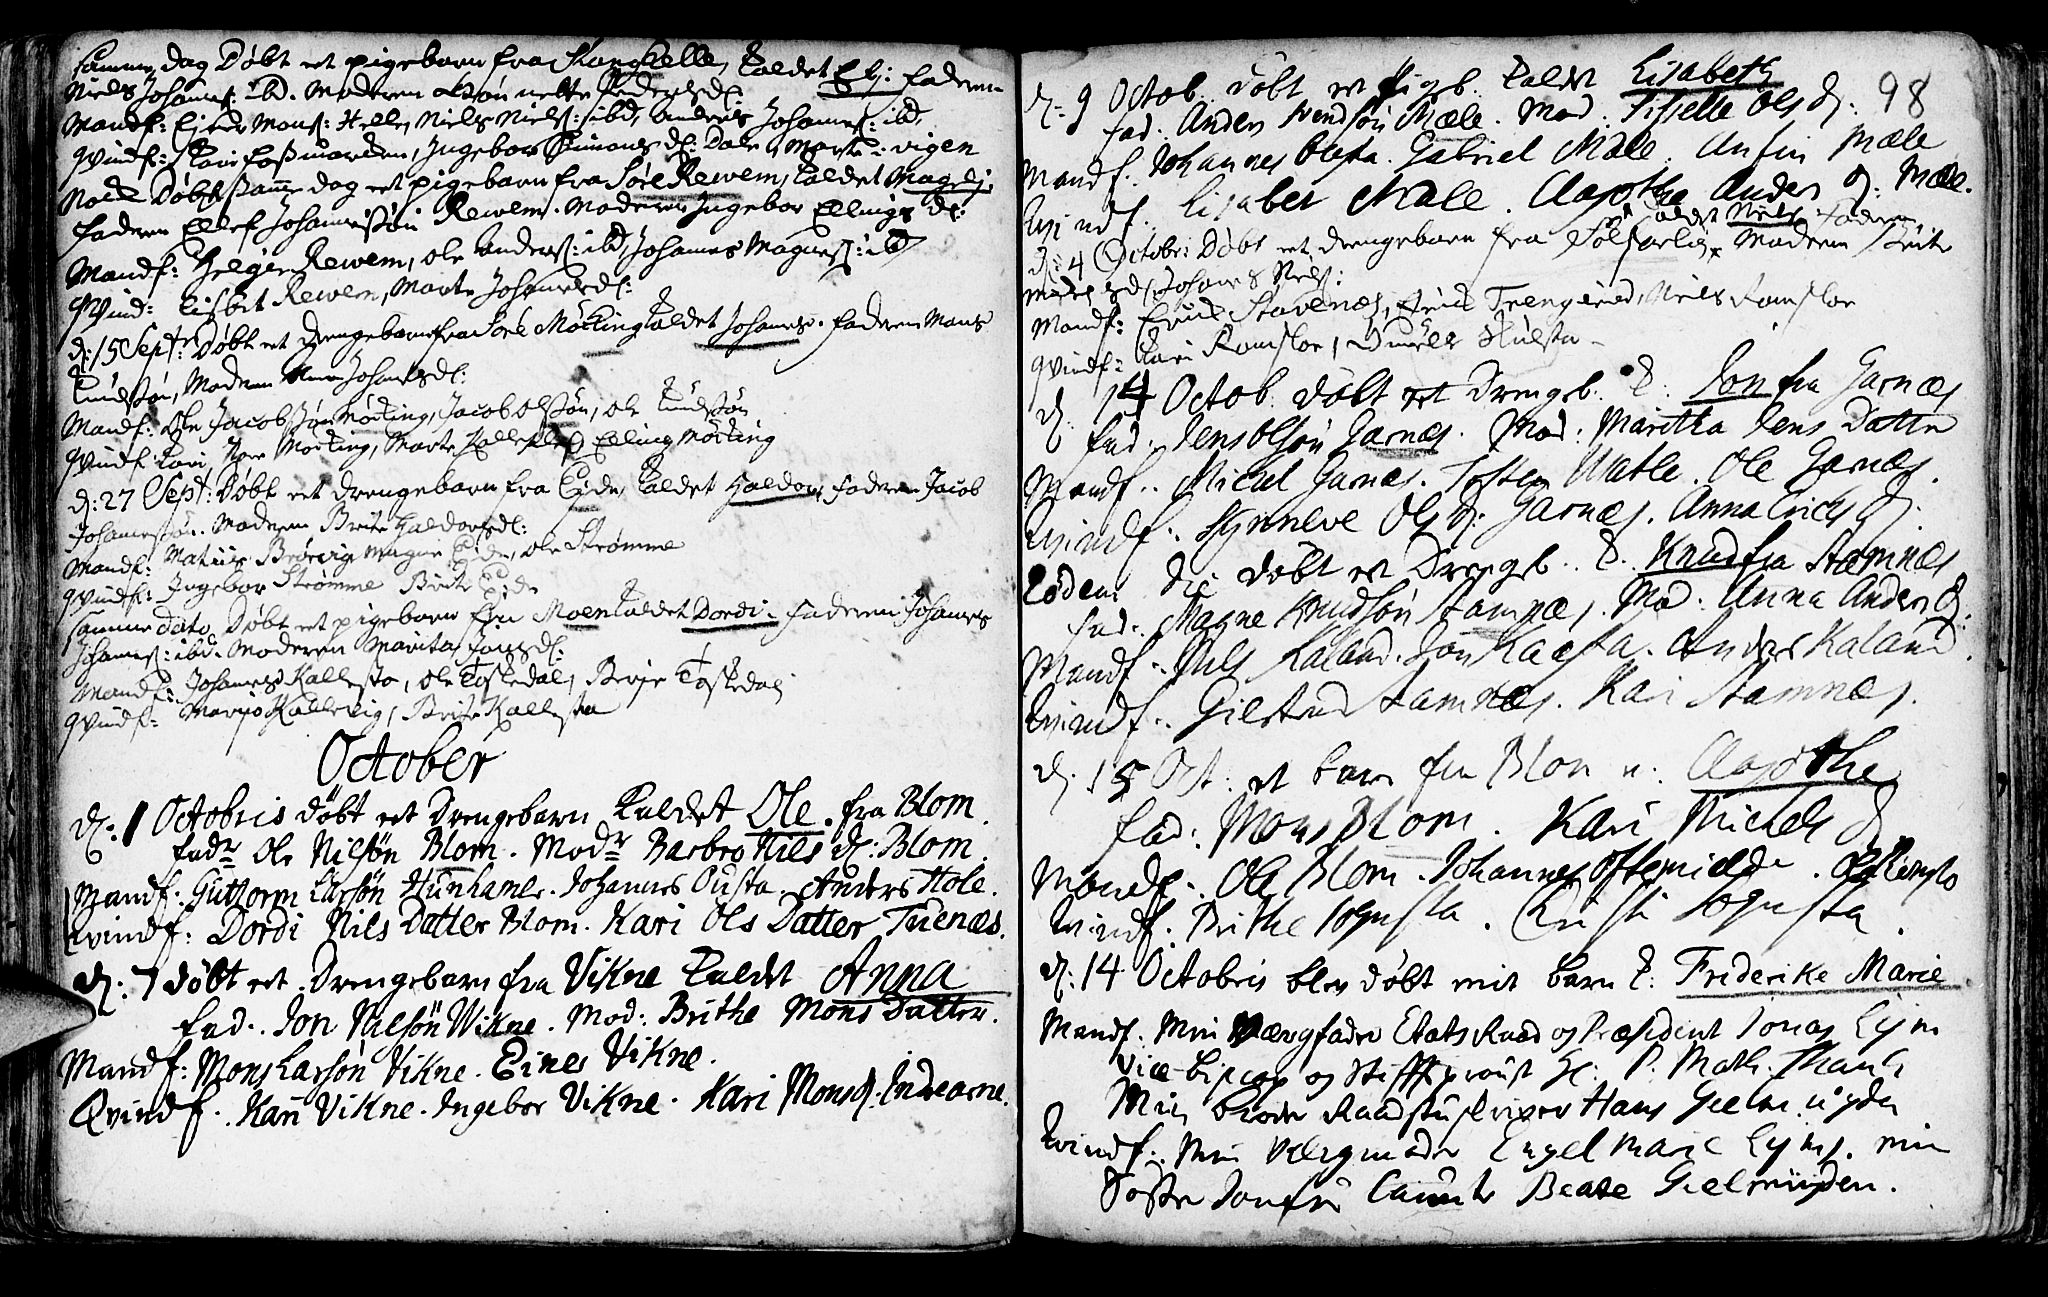 samme dag Døbt et pigebarn fra Kongshelle, Kaldet Elj: Faderen
Niels Johans: ibd. Moderen nette Pedersd:
Mandf: Ejler Mons: Helle, Niels Niels: ibd, Anders Johans: ibd,
Qvindf: Kari Fossmarken, Ingebor Simonsd: Dale, Marte vigen
Døbt samme dag et pigebarn fra Søre Rewem, Kaldet Mageli
Faderen Ellef Johanssøn Rewem. Moderen Ingebor Ellings d:
Mandf: Helge Rewem, Ole Anders: ibd, Johanes Magnes: ibd
Qvind: Lisbet Rewem, Marte Johansd:
d: 15 Sept: Døbt et Drengebarn fra Søre Mørking Kaldet Johanes. Faderen Mons
Knudsøn, Moderen Johansd:
Mandf: Ole Jacobsøn Mørking, Jacob Olssøn, Ole Knudssøn
Qvindf: Kari Mørking, Marte Elling Mørking
d: 27 Sept: Døbt et Drengebarn fra Eyde, Kaldet Haldor, Faderen Jacob
Johanssøn. Moderen Brite Haldorsd:
Mandf: Mathias Brørvig Magne Eyde, Ole Strømme
Qvindf: Ingebor Strømme Brite Eyde
samme dato Døbt et pigebarn fra Moen Kaldet Dordi. Faderen Johanes
Johanes: ibd. Moderen Marita Jonsd:
Mandf: Johanes Kallesta, Ole Toskedal, Birje Toskedal
Qvindf: Marjo Kallevig, Brite Kallesta
October
d: 1 Octobris døbt et Drengebarn Kaldet Ole. fra Blom.
Fadr Ole Nilsøn Blom. Modr Barbro Nils d: Blom.
Mandf: Guttorm Larsøn Hunhamer. Johannes Ousta. Anders Hole.
Kvindf: Dordi Nils Datter Blom. Kari Ols Datter Tuenæs.
d: 7 døbt et Drengebarn fra Vikne Kaldt Anna
Fad. Jon Nilsøn Wikne. Mod: Brithe Mons Datter.
Mandf: Mons Larsøn Vikne. Einer Vikne.
Qvindf. Kari Vikne. Ingebor Vikne. Kari Monsd. Indearne.
98
d. 9 Octob. døbt et Pigeb. Kaldt Lisabeth
Fad. Anders Svendsøn Mæle. Mod. Sisselle Ols d:
Mandf. Johannes Olsta. Gabriel Mæle. Anfin Mæle
Kvindf. Lisabet Mæle. Aagothe Anders d. Mæle.
d: 4 October: Døbt et Drengebarn fra Kaldet Niels Faderen
Johanes Niels: Moderen Brite
Mandf: Erick Stavenes, Erick Trengereid, Niels Ramsloe
Qvindf: Kari Ramsloe, Hulsta
d. 14 Octob. døbt et Drengeb. K. Jon fra Garnæs
Fad. Jens Olsøn Garnæs. Mod: Maritha Jens Datter
Mandf. Michel Garnæs. Tosten Watle. Ole Garnæs.
Kvindf. Synneve Ols d: Garnæs. Anna Erichs d.
Eodem die døbt et Drengeb. K. Knud fra Stamnæs
Fad. Magne Knudsøn Stamnæs. Mod. Anna Anders d:
Mandf. Nils Kaland. Jon Kaasta. Anders Kaland.
Kvindf. Giertrud Stamnæs. Kari Stamnæs.
d. 15 Oct: et barn fra Blom n: Aagothe
Fad: Mons Blom. Kari Michels d
Mandf. Ole Blom. Johannes
Kvindf. Brithe Sognsta. Kristi Sognsta.
d: 14 Octobris blev døbt mit barn K: Friderike Marie
Mandf. Min Værgfader Etats Raad og Præsident Jonas Lym
Vice-bispop og Stiftsproust Hr: P. Math.
Min broder Raadstuskriver Hans Geelmuyden
Kvindf. Min Værgmoder Engel Marie Lyms, min
Søster Jomfru Beate Geelmuyden.